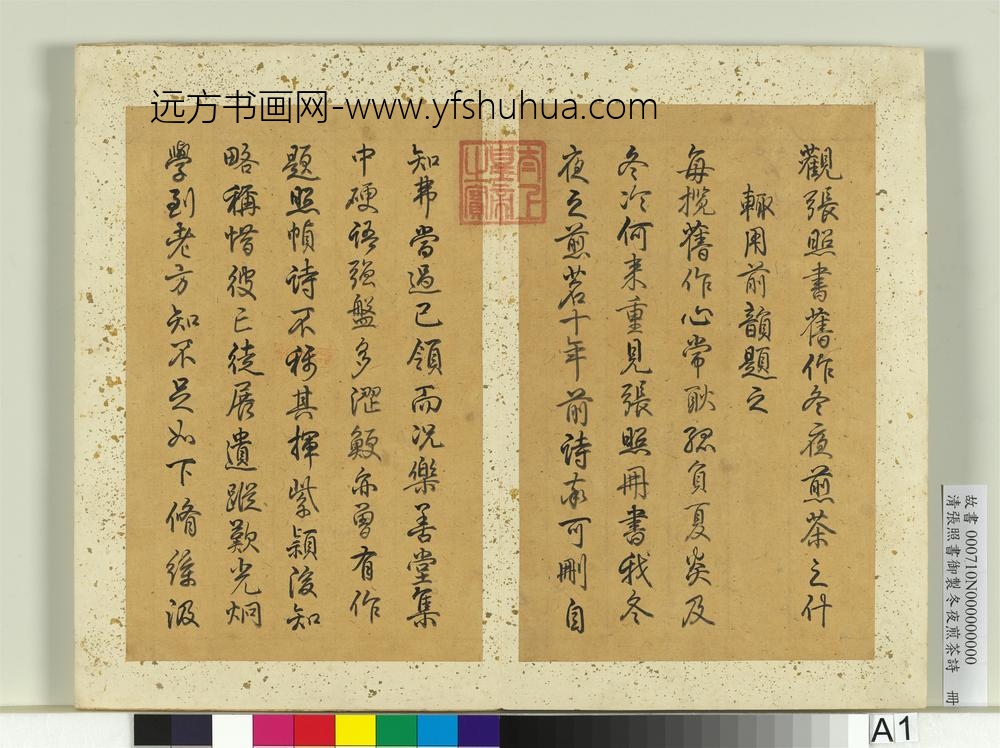 远方书画网-www.yfshuhua.com
觀張照書舊作冬夜煎茶之什
輙用前韻題之
每攬舊作心常耿孤負夏炎及
冬冷何来重見張照冊書我冬
夜之煎茗十年前詩本可刪自
太上
皇帝
之寶
知弗當過已領而况樂善堂集
中硬语強盤多澀鯁亦曽有作
題照幀诗不稱其揮紫穎後知
略稱惜彼亡徒展遺蹤歎光炯
學到老方知不足如下脩綆汲
故書 000710N000000000
清張照書御製冬夜煎茶詩 冊
A1